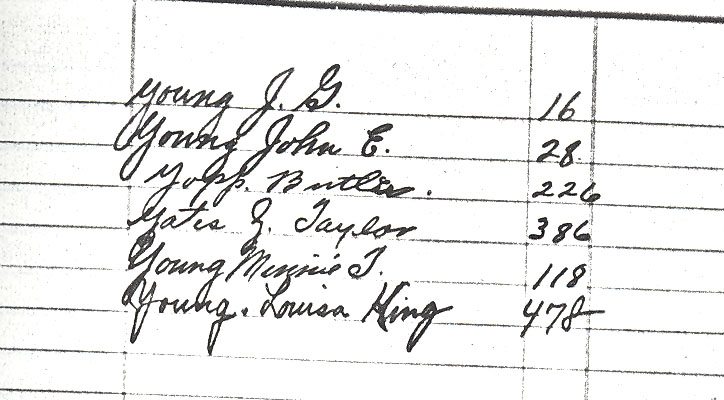 Young J. G. 16
Young John E. 28
Yopp. Butler. 226
Yates Z. Taylor 386
Young Minnie T. 118
Young. Louisa King 478